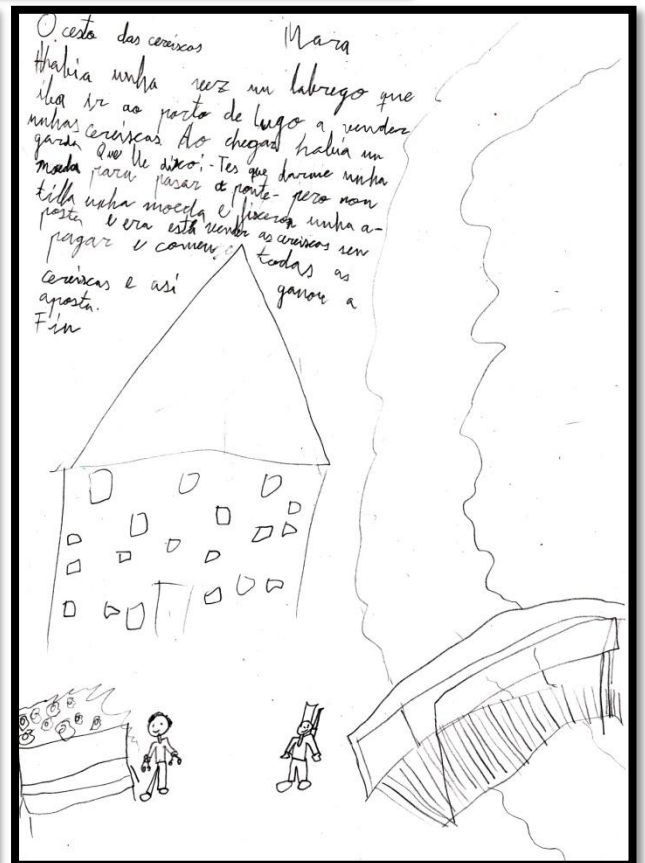 O cesto das cereixas Mara
Habia unha vez un labrego que
iba ir ao porto de Lugo a vender
unhas cereixas Ao chegar habia un
garda Que lle dixo:-Tes que darme unha
moeda para pasar a ponte- pero non
tiña unha moeda e fixeron unha a-
posta e era esta vender as cereixas sen
pagar e comeu todas as
cereixas e así ganou a
aposta.
Fin